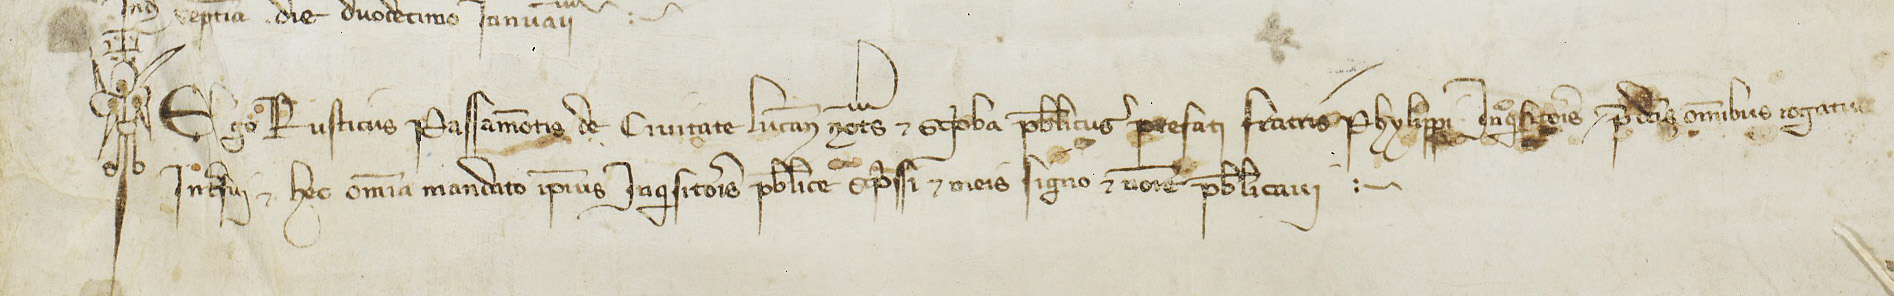 Ind septia die duodecimo Januarii
Ego Rusticus Passamotis de Civitate Lucan nots & scriba pblicus prefati fratris Phylippi Inqsitoris pdcis omibus rogatus
Interfui & hec omia mandato ipius Inqsitoris pblice scpssi & meis signo & noie pblicavi